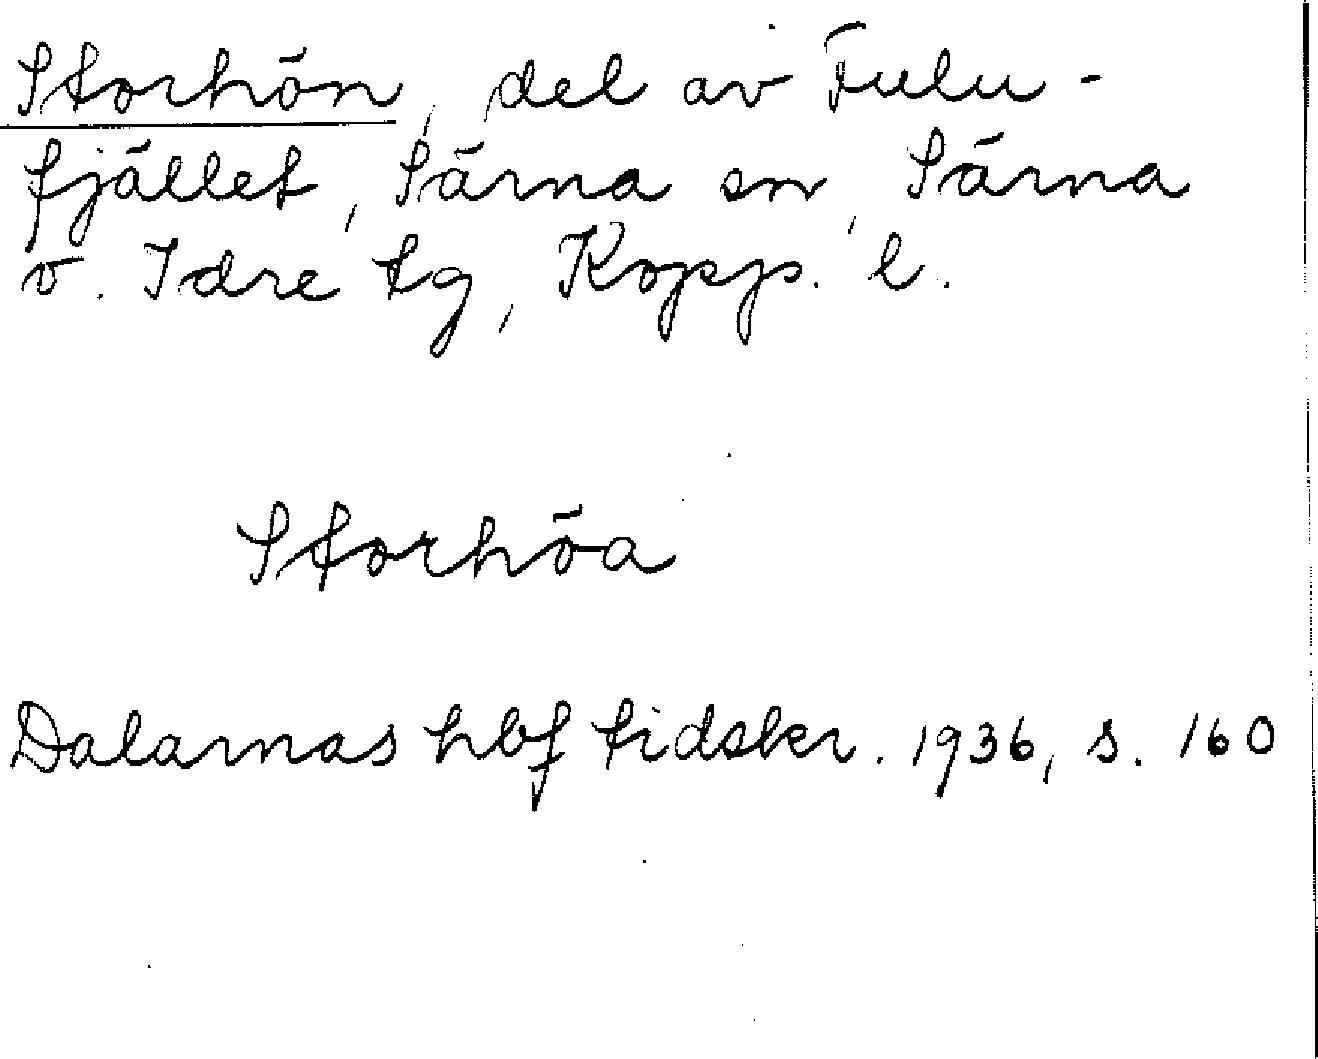 Storhön, del av Fulu-
fjället, Särna sn, Särna
o. Idre tg, Kopp. l.
Storhöa
Dalarnas hbf tidskr. 1936, s. 160